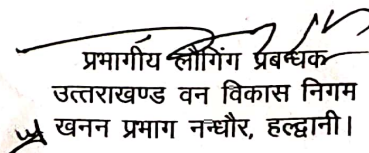 प्रभागीय लौगिंग प्रबन्धक
उत्तराखण्ड वन विकास निगम
खनन प्रभाग नन्धौर, हल्द्वानी।